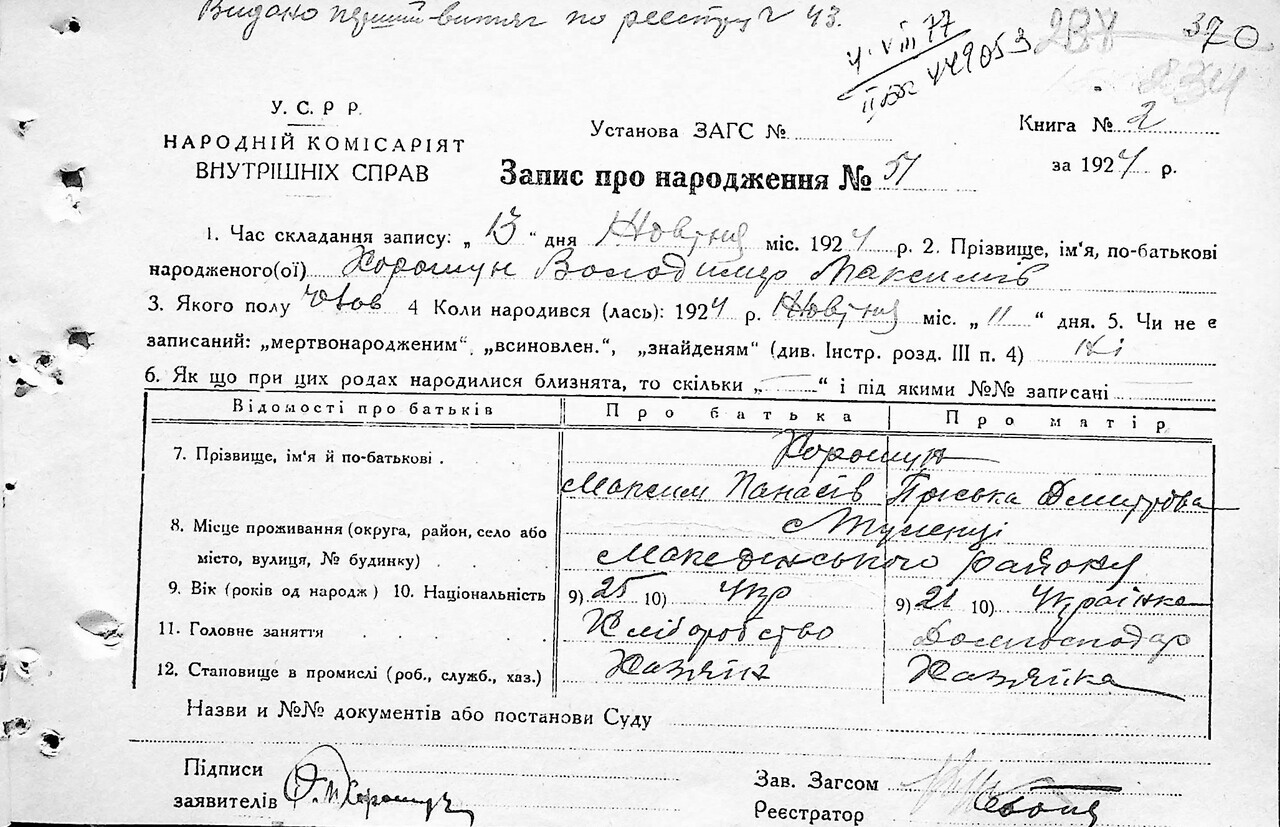 Видано перший витяг по реєстру 43.
4. VIII 77
449053
370
234
У. С. Р. Р.
НАРОДНІЙ КОМІСАРІЯТ
ВНУТРІШНІХ СПРАВ
Установа ЗАГС №
Книга № 2
за 1924 р.
Запис про народження № 51
1. Час складання запису: „ 13 “ дня Жовтня міс. 1924 р. 2. Прізвище, ім'я, по-батькові
народженого(ої) Хорошун Володимир Максимів
3. Якого полу чолов 4 Коли народився (лась): 1924 р. Жовтня міс. „ 11 “ дня. 5. Чи не є
записаний: „мертвонародженим“, „всиновлен.“, „знайденям“ (див. Інстр. розд. III п. 4) ні
6. Як що при цих родах народилися близнята, то скільки „ — “ і під якими №№ записані
Відомості про батьків Про батька Про матір
7. Прізвище, ім'я й по-батькові . Хорошун
Максим Панасів Пріська Дмитрова
8. Місце проживання (округа, район, село або
місто, вулиця, № будинку) . с Тулинці
Македонського району
9. Вік (років од народж) 10. Національність 9) 25 10) Укр 9) 21 10) Українка
11. Головне заняття . . . . Хліборобство Домгосподар
12. Становище в промислі (роб., служб., хаз.) Хазяїн Хазяйка
Назви и №№ документів або постанови Суду
Підписи
заявителів Хорошун
Зав. Загсом
Реєстратор